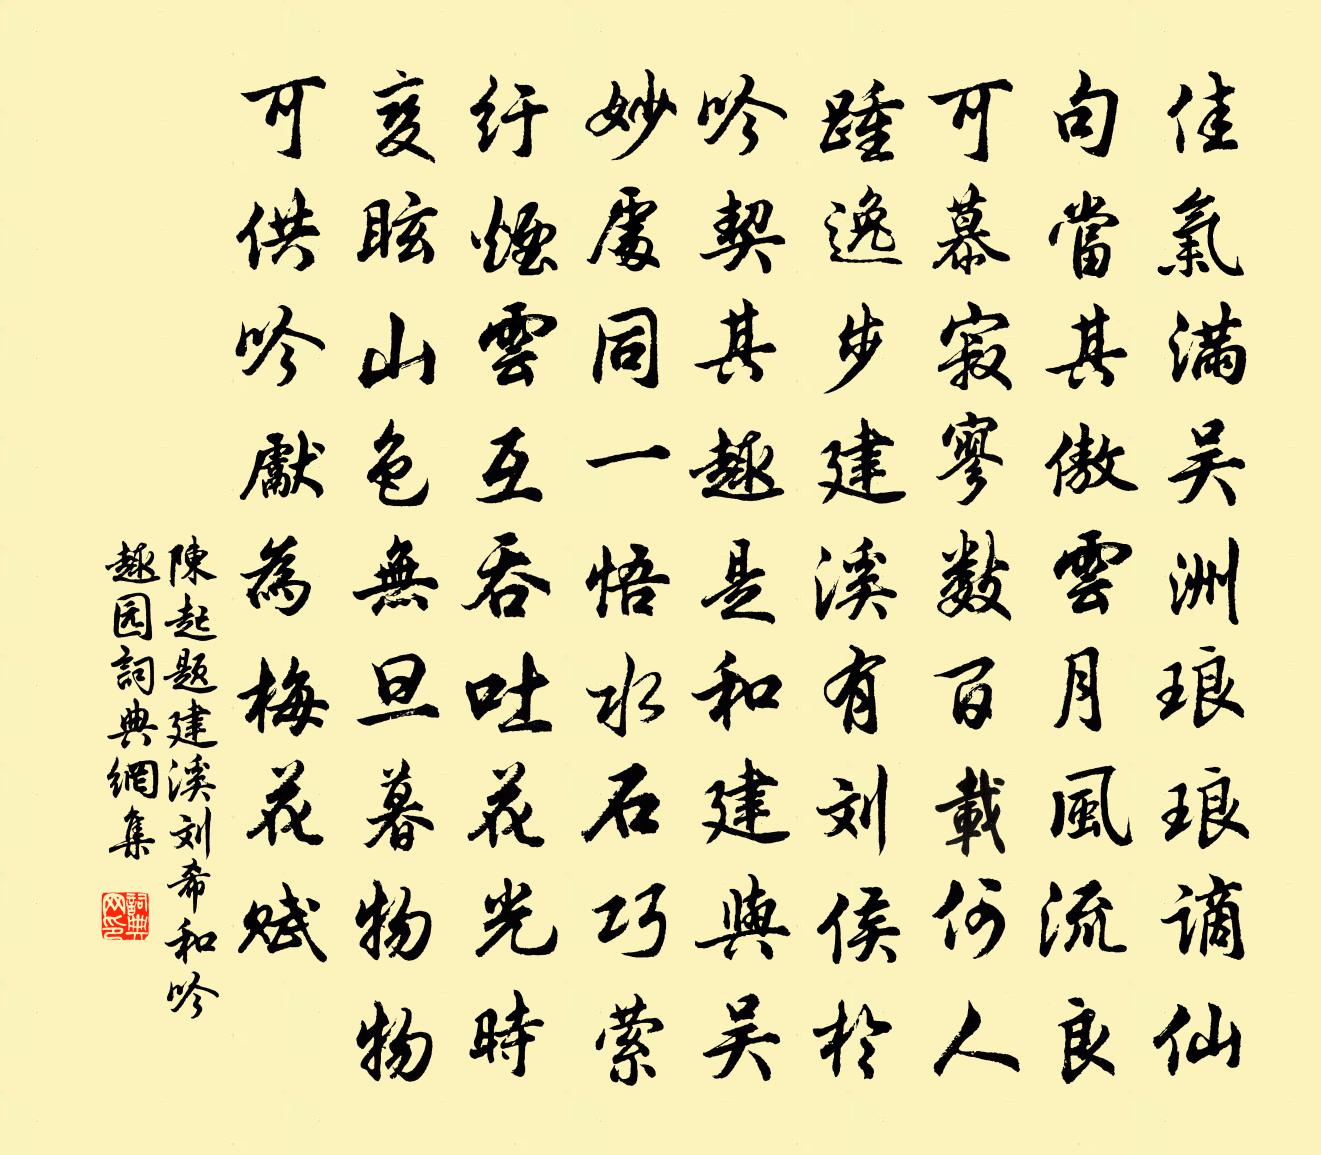 佳氣滿吴洲琅琅謫仙
句當其傲雲月風流良
可慕寂寥數百載何人
踵逸步建溪有刘侯於
吟契其趣是和建與吴
妙處同一悟水石巧萦
纡煙雲互吞吐花光時
变眩山色無旦暮物物
可供吟獻為梅花赋
陳起题建溪刘希和吟
趣园詞典網集
詞典网印